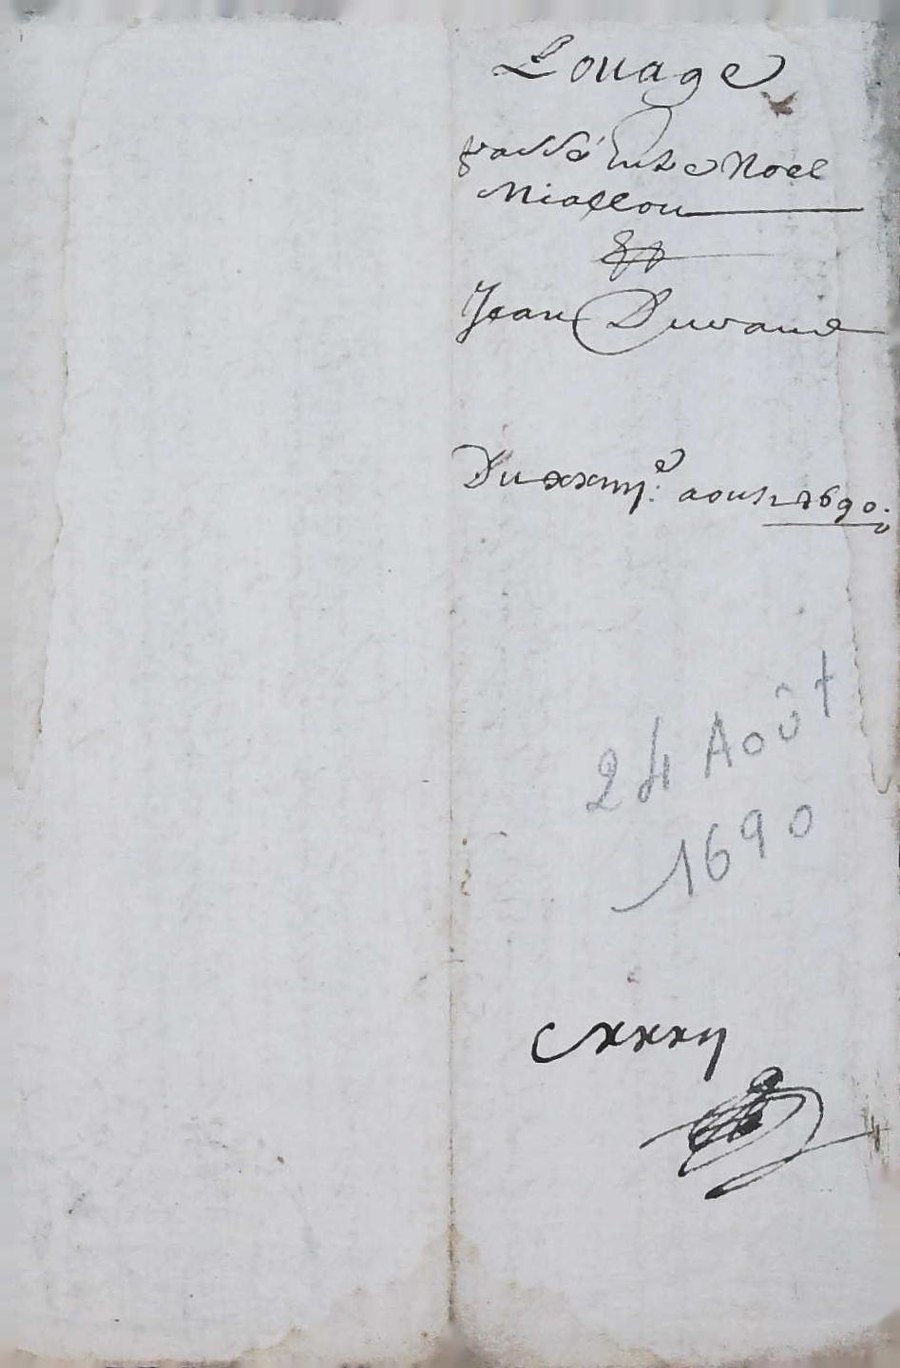 Louage
passé Entre Noel
Miallou
&
Jean Durand
Du xxiiij.e aoust 1690.
24 Août
1690
Cxxxij